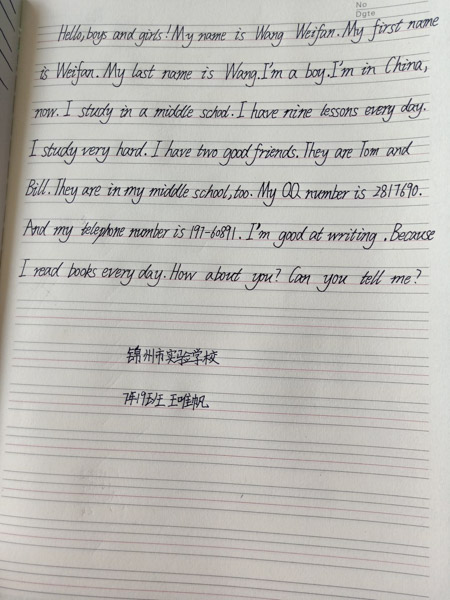 No
Date
Hello, boys and girls! My name is Wang Weifan. My first name
is Weifan. My last name is Wang. I'm a boy. I'm in China,
now. I study in a middle school. I have nine lessons every day.
I study very hard. I have two good friends. They are Tom and
Bill. They are in my middle school, too. My QQ number is 2817690.
And my telephone number is 197-60891. I'm good at writing. Because
I read books every day. How about you? Can you tell me?
锦州市实验学校
7年19班 王唯帆